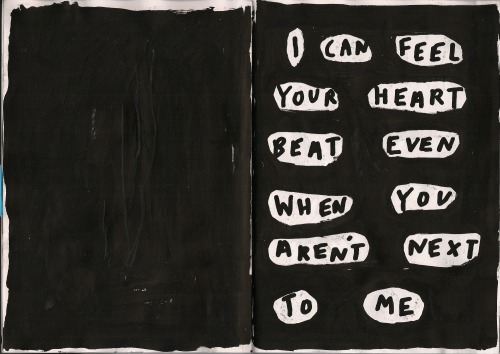 I CAN FEEL
YOUR HEART
BEAT EVEN
WHEN YOU
AREN'T NEXT
TO ME